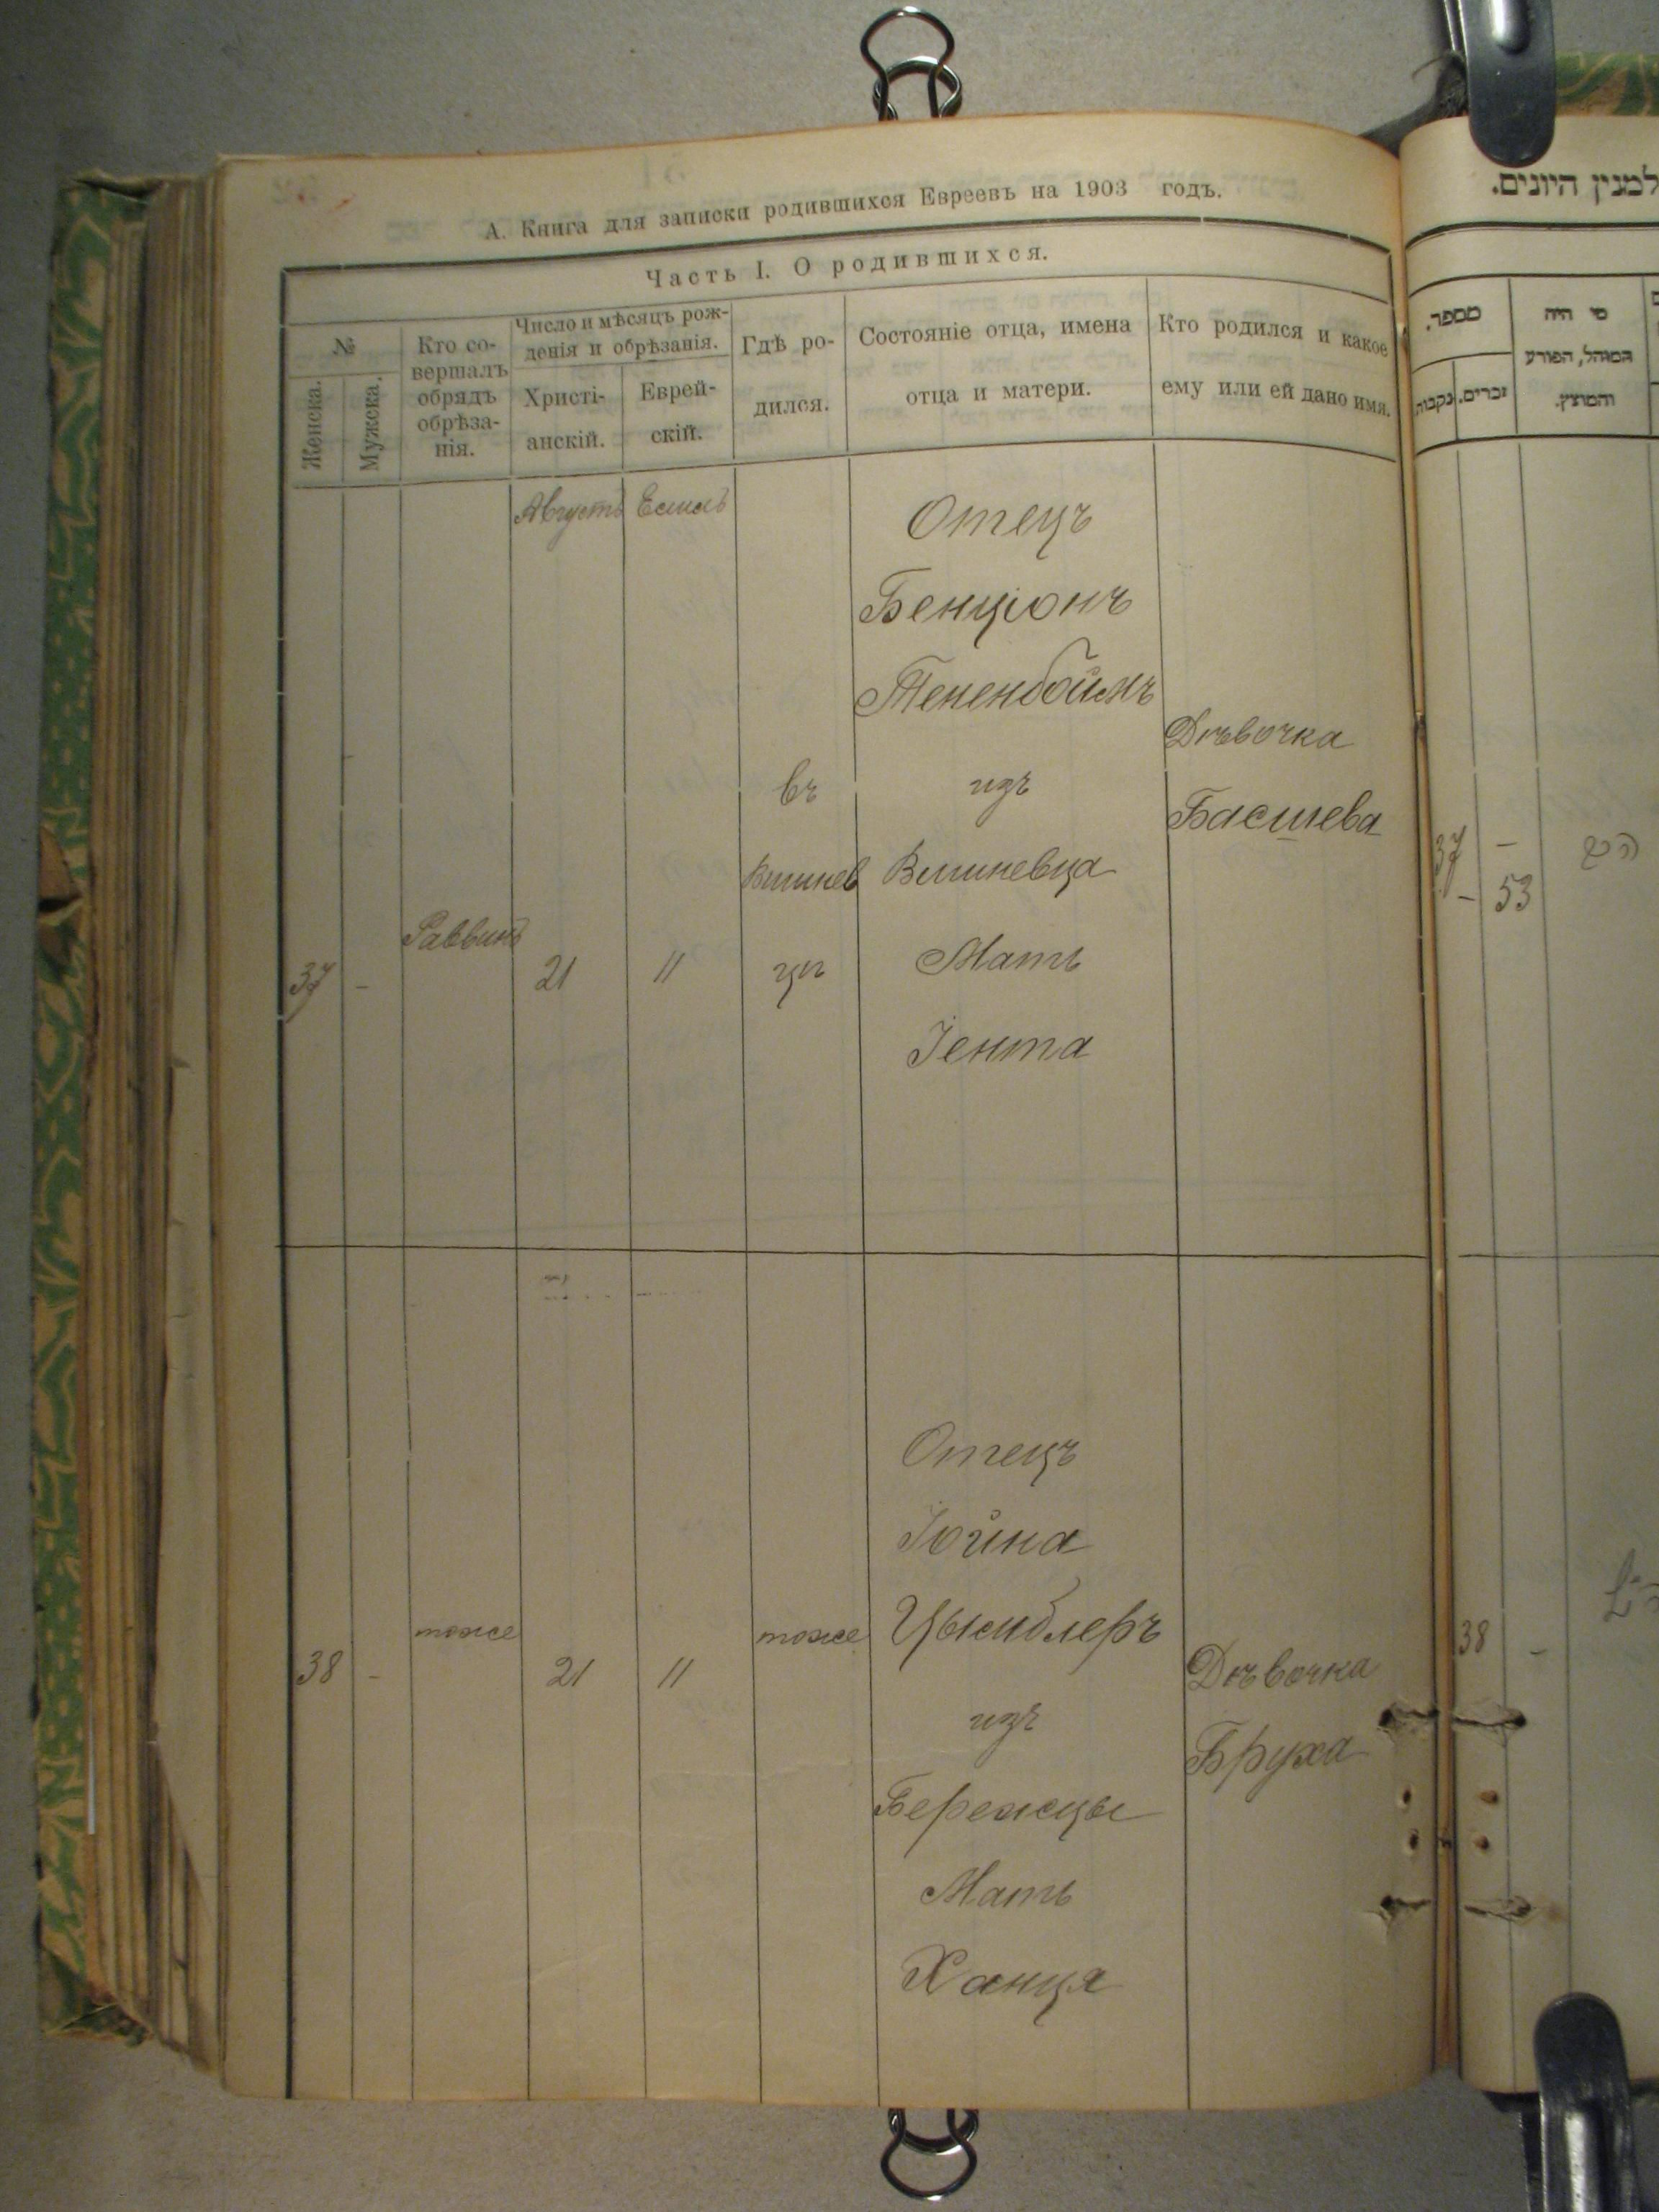 А. Книга для записки родившихся Евреевъ на 1903 годъ.
Часть I. О родившихся.
№
Женска.
Мужска.
Кто со-
вершалъ
обрядъ
обрѣза-
нія.
Число и мѣсяцъ рож-
денія и обрѣзанія.
Христі-
анскій.
Еврей-
скій.
Гдѣ ро-
дился.
Состояніе отца, имена
отца и матери.
Кто родился и какое
ему или ей дано имя.
37
-
Раввинъ
Августъ
21
Елулъ
11
въ
Вишнев
цѣ
Отецъ
Бенціонъ
Тененбоймъ
изъ
Вишневца
Мать
Іента
Дѣвочка
Басшева
38
-
тоже
21
11
тоже
Отецъ
Іойна
Цымблеръ
изъ
Бережцы
Мать
Ханця
Дѣвочка
Бруха
למנין היונים.
מספר.
נקבות
זכרים.
מי היה
המוהל, הפורע
והמוצץ.
37 -
- 53
38 -